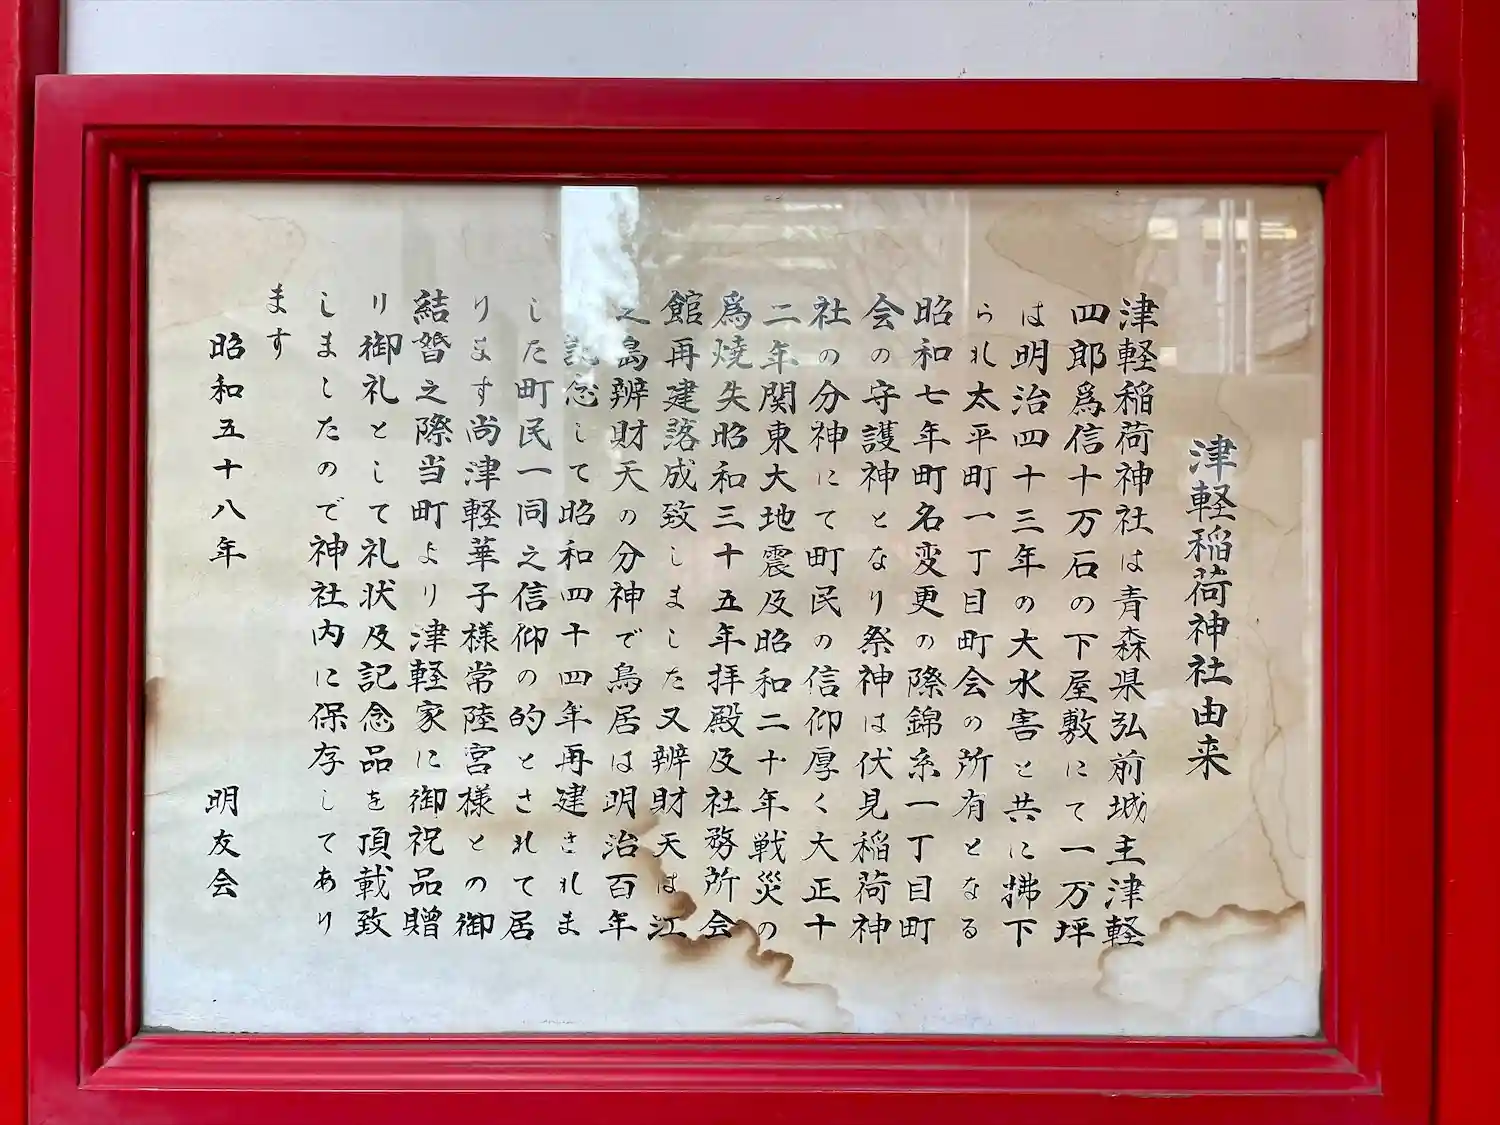 津軽稲荷神社由来
津軽稲荷神社は青森県弘前城主津軽
四郎爲信十万石の下屋敷にて一万坪
は明治四十三年の大水害と共に拂下
られ太平町一丁目町会の所有となる
昭和七年町名変更の際錦糸一丁目町
会の守護神となり祭神は伏見稲荷神
社の分神にて町民の信仰厚く大正十
二年関東大地震及昭和二十年戦災の
爲焼失昭和三十五年拝殿及社務所会
館再建落成致しました又辨財天は江
之島辨財天の分神で鳥居は明治百年
記念して昭和四十四年再建されま
した町民一同之信仰の的とされて居
ります尚津軽華子様常陸宮様との御
結婚之際当町より津軽家に御祝品贈
り御礼として礼状及記念品を頂載致
しましたので神社内に保存してあり
ます
昭和五十八年
明友会